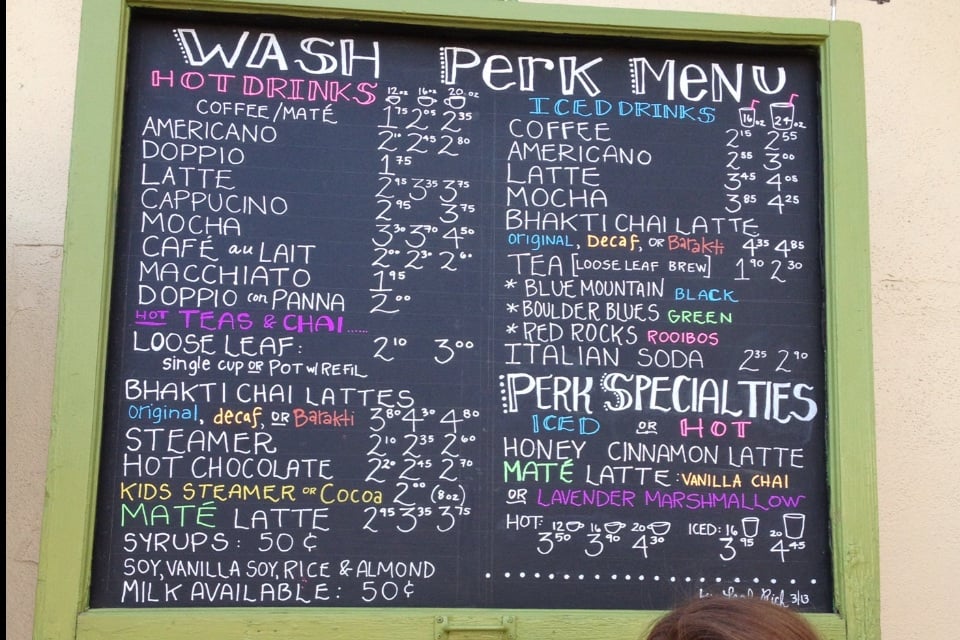 WASH PERK MENU
HOT DRINKS 12oz 16oz 20oz
COFFEE/MATÉ 1.75 2.05 2.35
AMERICANO 2.10 2.45 2.80
DOPPIO 1.75
LATTE 2.95 3.35 3.75
CAPPUCINO 2.95 3.75
MOCHA 3.30 3.70 4.50
CAFÉ au LAIT 2.00 2.30 2.60
MACCHIATO 1.95
DOPPIO con PANNA 2.00
HOT TEAS & CHAI......
LOOSE LEAF: 2.10 3.00
single cup OR POT w/ REFIL
BHAKTI CHAI LATTES
original, decaf, OR Barakti 3.80 4.30 4.80
STEAMER 2.10 2.35 2.60
HOT CHOCOLATE 2.20 2.45 2.70
KIDS STEAMER OR COCOA 2.00 (8oz)
MATÉ LATTE 2.95 3.35 3.75
SYRUPS: 50¢
SOY, VANILLA SOY, RICE & ALMOND
MILK AVAILABLE: 50¢
ICED DRINKS 16oz 24oz
COFFEE 2.15 2.55
AMERICANO 2.55 3.00
LATTE 3.45 4.05
MOCHA 3.85 4.25
BHAKTI CHAI LATTE
original, Decaf, OR Barakti 4.35 4.85
TEA [LOOSE LEAF BREW] 1.90 2.30
* BLUE MOUNTAIN BLACK
* BOULDER BLUES GREEN
* RED ROCKS ROOIBOS
ITALIAN SODA 2.35 2.90
PERK SPECIALTIES
ICED OR HOT
HONEY CINNAMON LATTE
MATÉ LATTE: VANILLA CHAI
OR LAVENDER MARSHMALLOW
HOT: 12 16 20 ICED: 16 20
3.50 3.90 4.30 3.95 4.45
by Rich 3/13